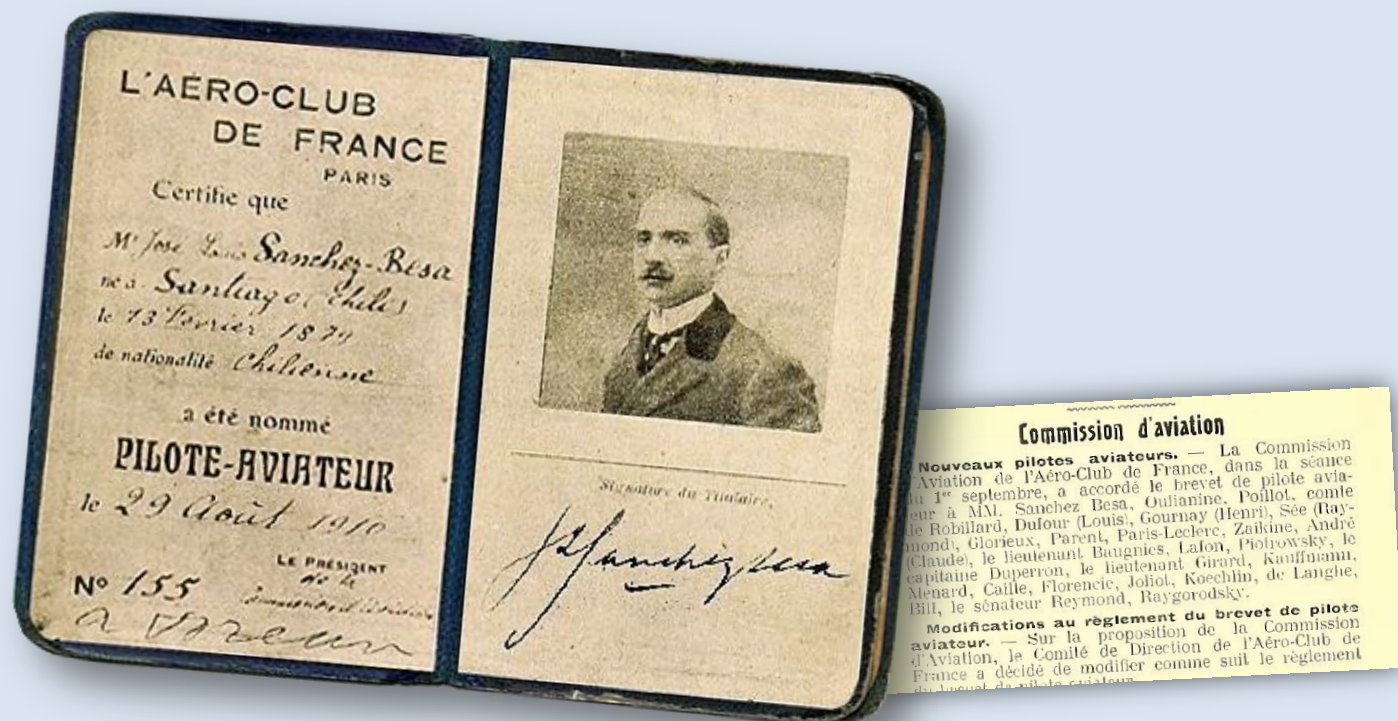 L'AERO-CLUB
DE FRANCE
PARIS
Certifie que
Mr José Louis Sanchez-Besa
né à Santiago (Chili)
le 13 Février 1879
de nationalité Chilienne
a été nommé
PILOTE-AVIATEUR
le 29 Août 1910
LE PRÉSIDENT
No 155
Signature du Titulaire,
JL Sanchez Besa
Commission d'aviation
Nouveaux pilotes aviateurs. — La Commission
d'Aviation de l'Aéro-Club de France, dans la séance
du 1er septembre, a accordé le brevet de pilote avia-
teur à MM. Sanchez Besa, Oulianine, Poillot, comte
de Robillard, Dufour (Louis), Gournay (Henri), Sée (Ray-
mond), Glorieux, Parent, Paris-Leclerc, Zaikine, André
(Claude), le lieutenant Baugnies, Lafon, Piotrowsky, le
capitaine Duperron, le lieutenant Girard, Kauffmann,
Menard, Caille, Florencie, Joliot, Koechlin, de Langhe,
Bill, le sénateur Reymond, Raygorodsky.
Modifications au règlement du brevet de pilote
aviateur. — Sur la proposition de la Commission
d'Aviation, le Comité de Direction de l'Aéro-Club de
France a décidé de modifier comme suit le règlement
du brevet de pilote aviateur